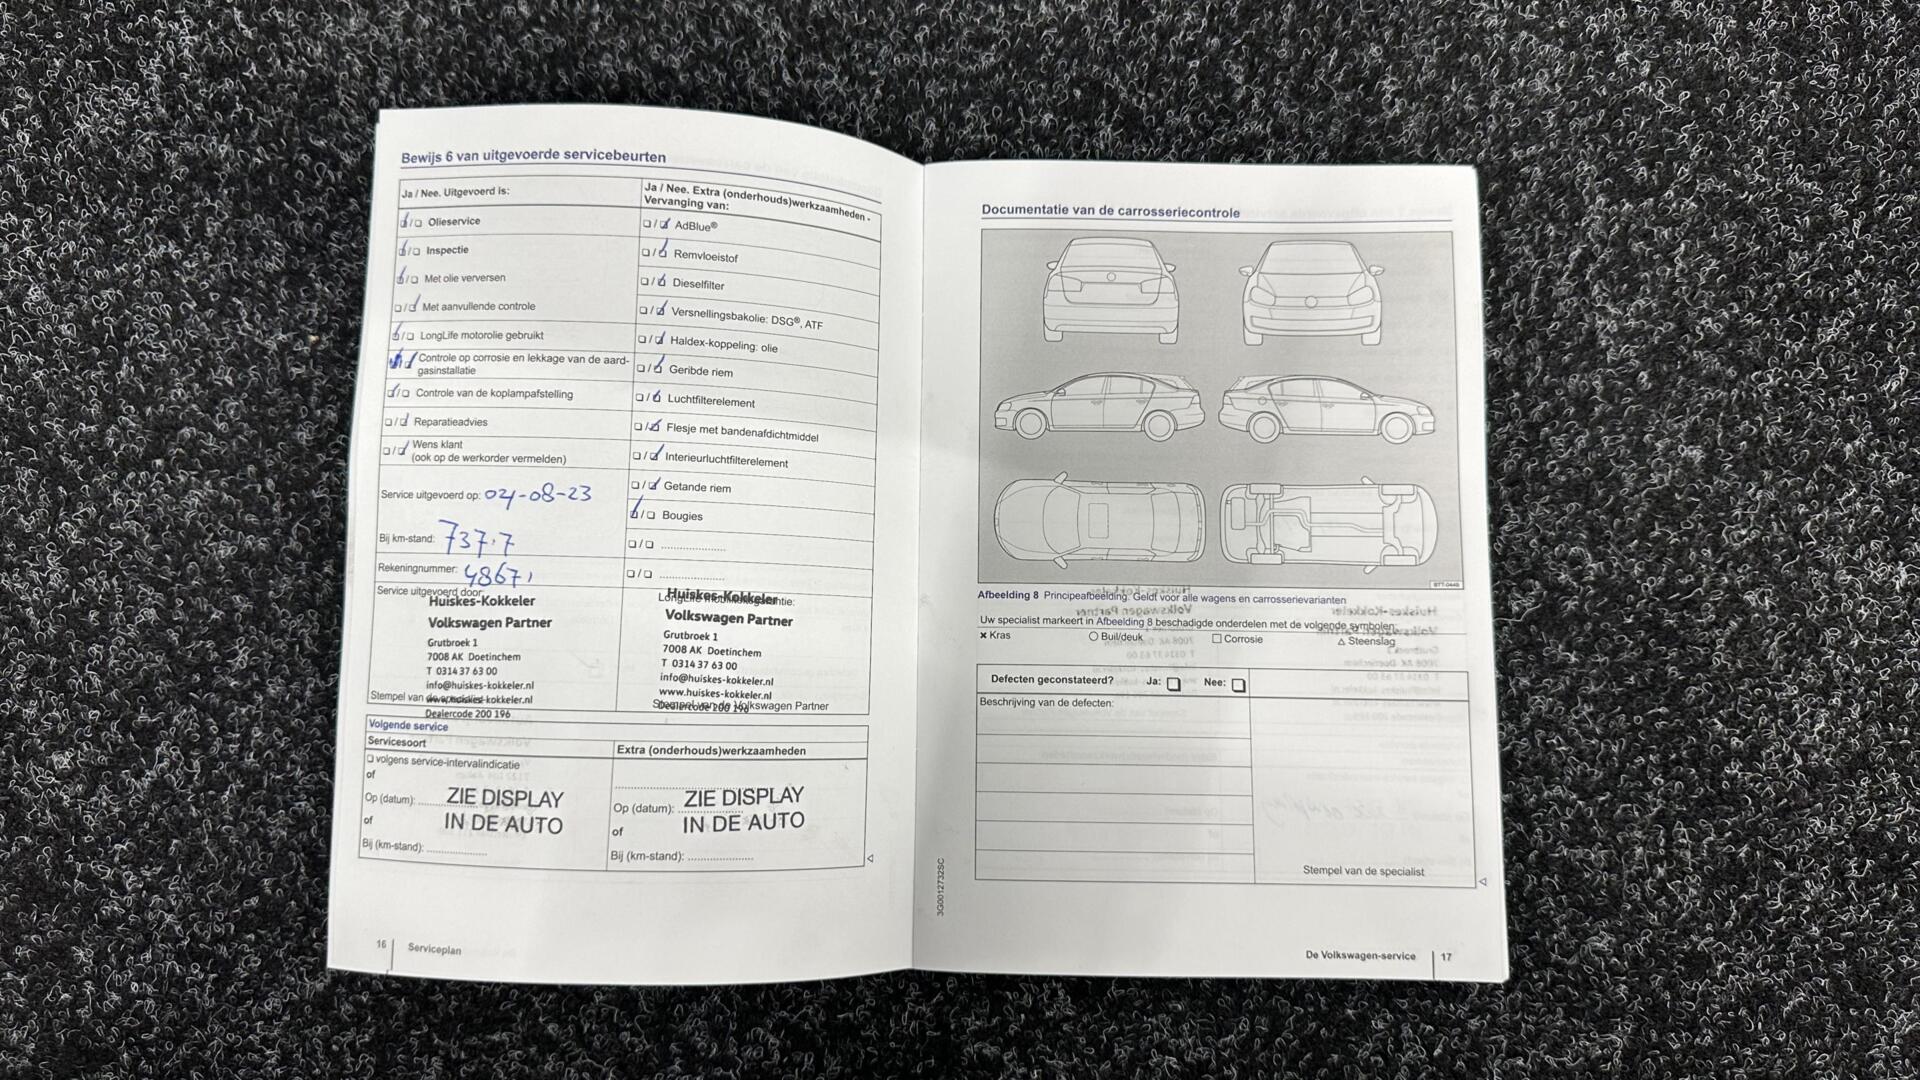 Bewijs 6 van uitgevoerde servicebeurten
Ja / Nee. Uitgevoerd is:
Olieservice
Inspectie
Met olie verversen
Met aanvullende controle
LongLife motorolie gebruikt
Controle op corrosie en lekkage van de aard-
gasinstallatie
Controle van de koplampafstelling
Reparatieadvies
Wens klant
(ook op de werkorder vermelden)
Service uitgevoerd op: 04-08-23
Bij km-stand: 737.7
Rekeningnummer: 4867
Service uitgevoerd door:
Huiskes-Kokkeler
Volkswagen Partner
Grutbroek 1
7008 AK Doetinchem
T 0314 37 63 00
info@huiskes-kokkeler.nl
www.huiskes-kokkeler.nl
Dealercode 200 196
Stempel van de specialist
Ja / Nee. Extra (onderhouds)werkzaamheden -
Vervanging van:
AdBlue®
Remvloeistof
Dieselfilter
Versnellingsbakolie: DSG®, ATF
Haldex-koppeling: olie
Geribde riem
Luchtfilterelement
Flesje met bandenafdichtmiddel
Interieurluchtfilterelement
Getande riem
Bougies
Huiskes-Kokkeler
Volkswagen Partner
Grutbroek 1
7008 AK Doetinchem
T 0314 37 63 00
info@huiskes-kokkeler.nl
www.huiskes-kokkeler.nl
Dealercode 200 196
Stempel van de Volkswagen Partner
Volgende service
Servicesoort
volgens service-intervalindicatie
of
Op (datum):
of
Bij (km-stand):
ZIE DISPLAY
IN DE AUTO
Extra (onderhouds)werkzaamheden
Op (datum):
of
Bij (km-stand):
ZIE DISPLAY
IN DE AUTO
16 Serviceplan
Documentatie van de carrosseriecontrole
Afbeelding 8 Principeafbeelding: Geldt voor alle wagens en carrosserievarianten
Uw specialist markeert in Afbeelding 8 beschadigde onderdelen met de volgende symbolen:
Kras Buil/deuk Corrosie Steenslag
Defecten geconstateerd? Ja: Nee:
Beschrijving van de defecten:
Stempel van de specialist
3G0012732SC
De Volkswagen-service 17